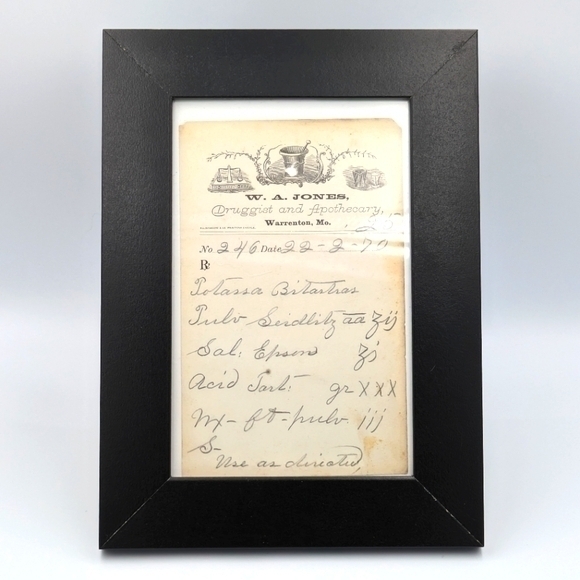 W. A. JONES,
Druggist and Apothecary,
Warrenton, Mo.
25
No 246 Date 22-2-77
℞
Potassa Bitartras
Pulv Seidlitz aa ʒij
Sal: Epsom ʒi
Acid Tart: gr XXX
Mx-ft-pulv iij
S-
Use as directed,